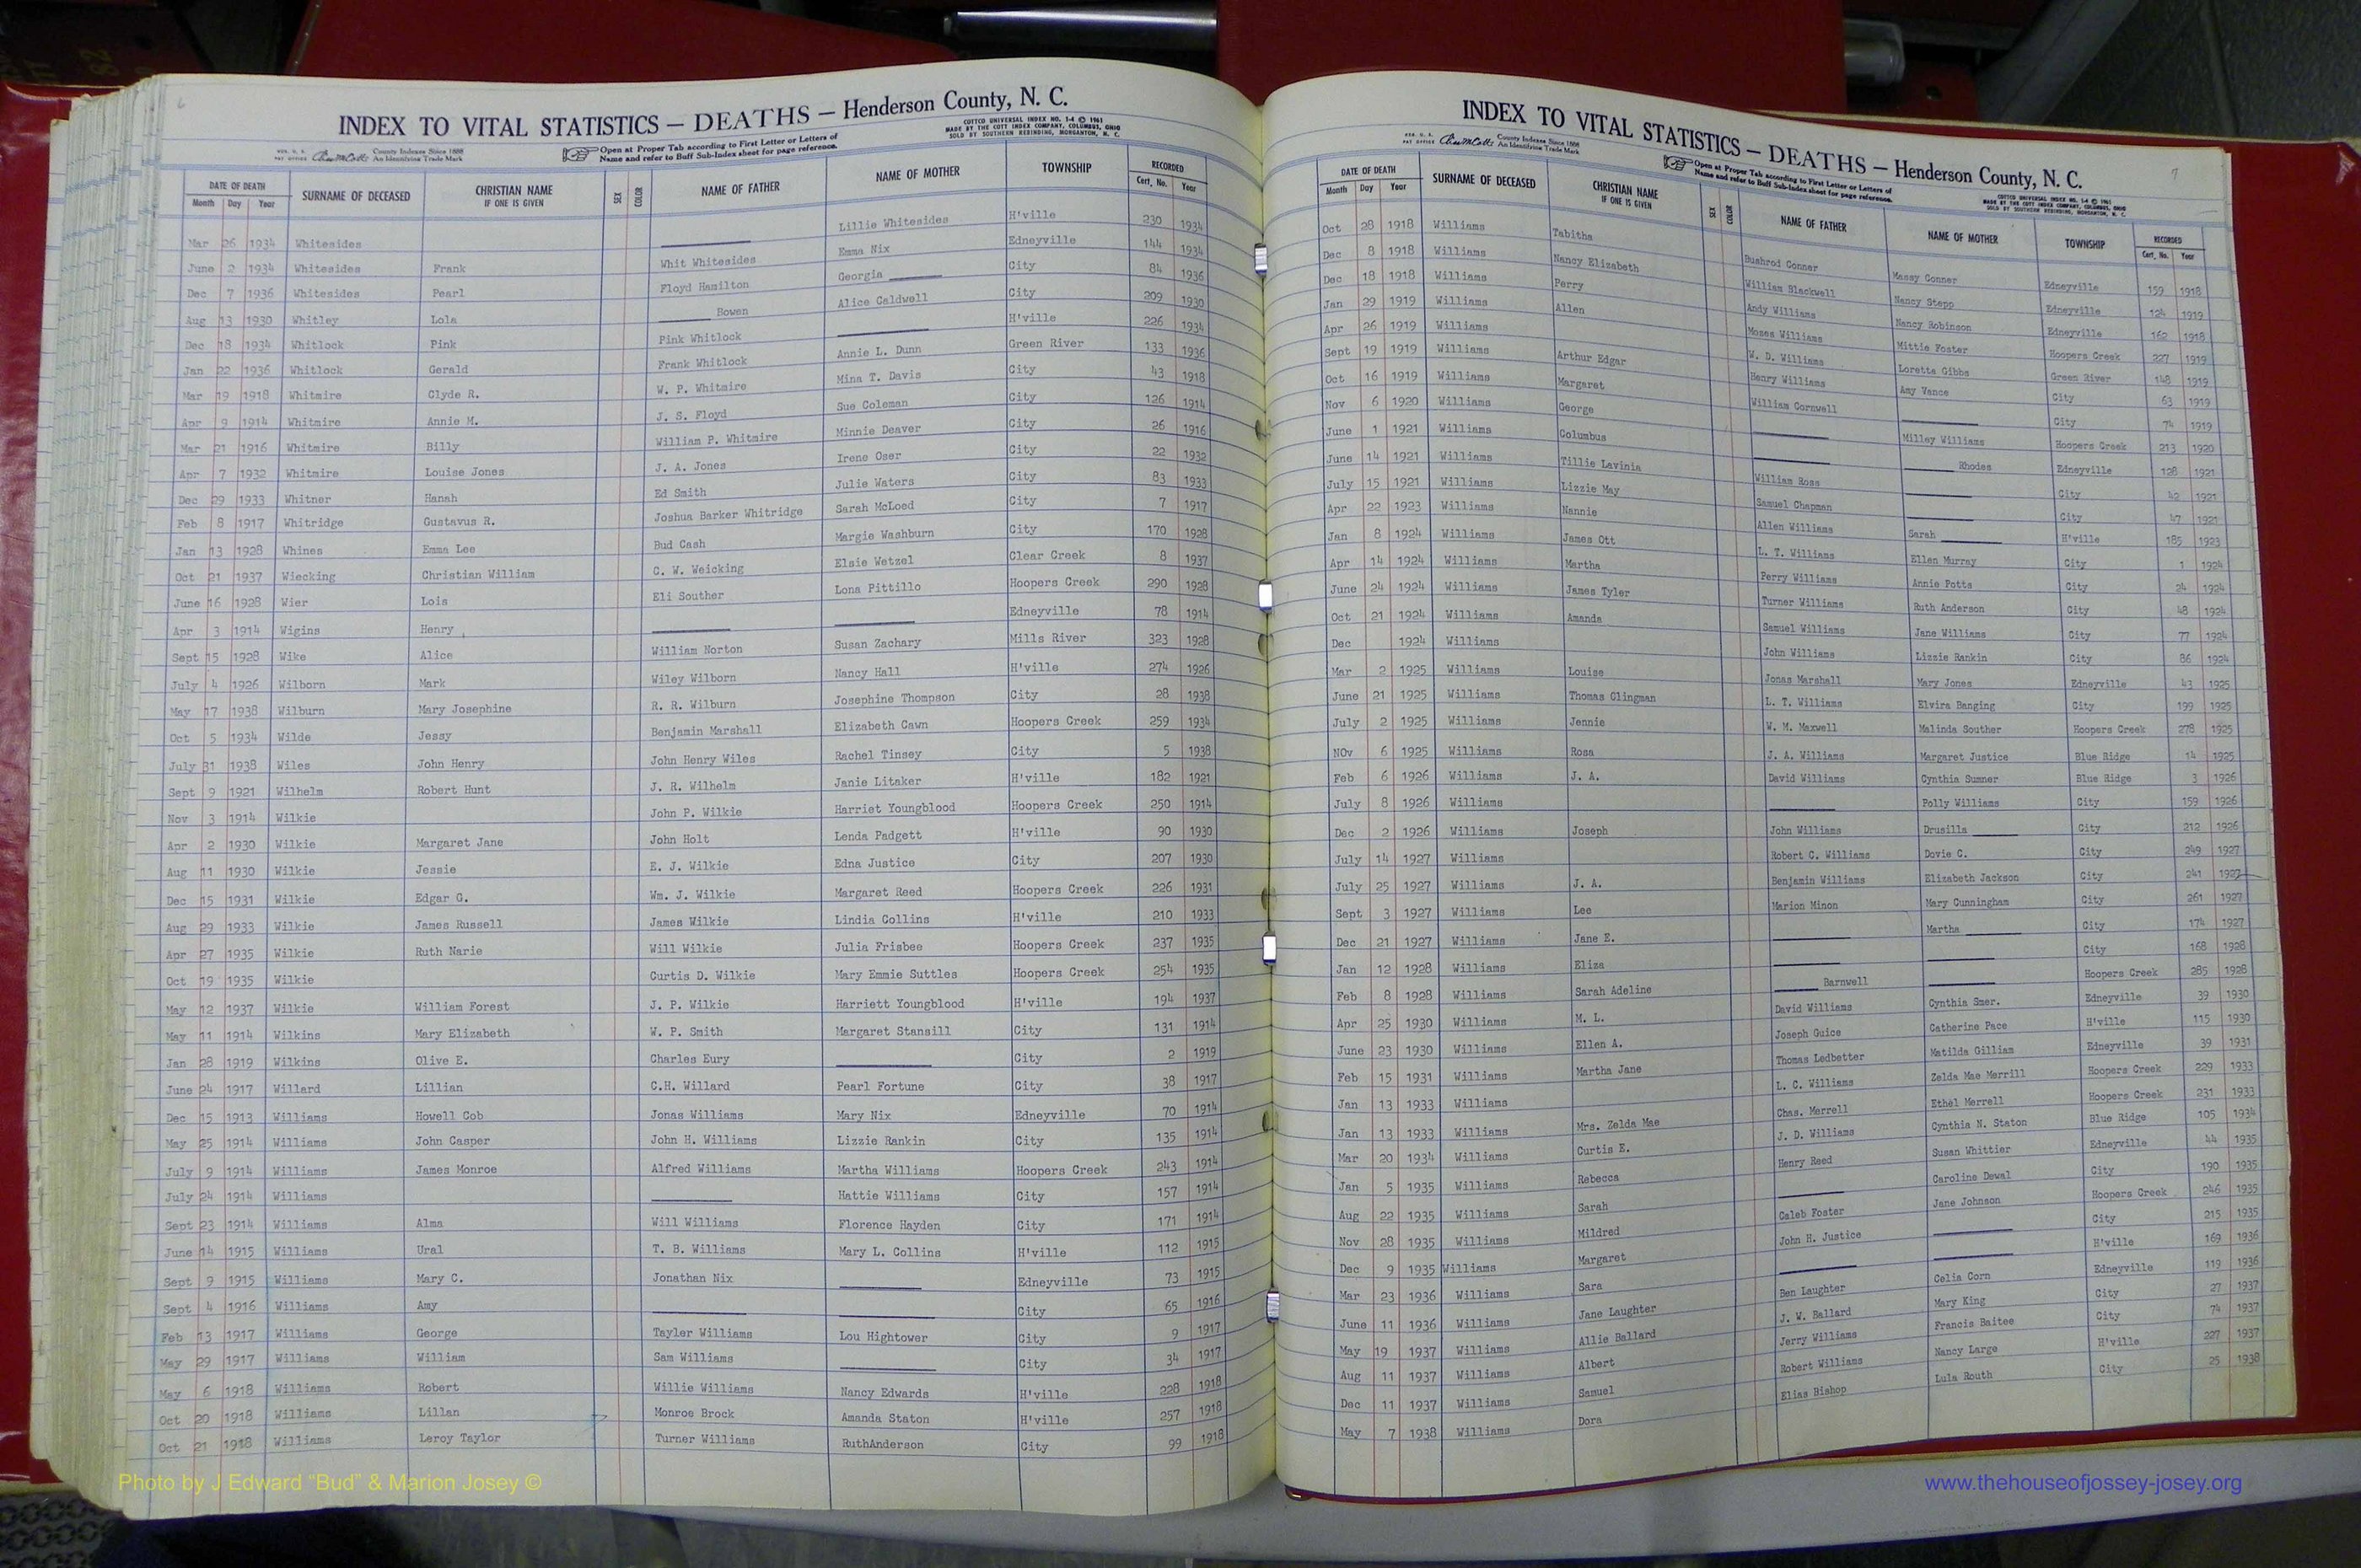 6
INDEX TO VITAL STATISTICS — DEATHS — Henderson County, N. C.
REG. U. S. PAT OFFICE County Indexes Since 1888 An Identifying Trade Mark
Open at Proper Tab according to First Letter or Letters of Name and refer to Buff Sub-Index sheet for page reference.
COTTCO UNIVERSAL INDEX NO. 1-4 © 1961
MADE BY THE COTT INDEX COMPANY, COLUMBUS, OHIO
SOLD BY SOUTHERN REBINDING, MORGANTON, N. C.
DATE OF DEATH SURNAME OF DECEASED CHRISTIAN NAME IF ONE IS GIVEN SEX COLOR NAME OF FATHER NAME OF MOTHER TOWNSHIP RECORDED
Month Day Year Cert. No. Year
Mar 26 1934 Whitesides Lillie Whitesides H'ville 230 1934
June 2 1934 Whitesides Frank Whit Whitesides Emma Nix Edneyville 144 1934
Dec 7 1936 Whitesides Pearl Floyd Hamilton Georgia City 84 1936
Aug 13 1930 Whitley Lola Bowen Alice Caldwell City 209 1930
Dec 18 1934 Whitlock Pink Pink Whitlock H'ville 226 1934
Jan 22 1936 Whitlock Gerald Frank Whitlock Annie L. Dunn Green River 133 1936
Mar 19 1918 Whitmire Clyde R. W. P. Whitmire Mina T. Davis City 43 1918
Apr 9 1914 Whitmire Annie M. J. S. Floyd Sue Coleman City 126 1914
Mar 21 1916 Whitmire Billy William P. Whitmire Minnie Deaver City 26 1916
Apr 7 1932 Whitmire Louise Jones J. A. Jones Irene Oser City 22 1932
Dec 29 1933 Whitner Hanah Ed Smith Julie Waters City 83 1933
Feb 8 1917 Whitridge Gustavus R. Joshua Barker Whitridge Sarah McLoed City 7 1917
Jan 13 1928 Whines Emma Lee Bud Cash Margie Washburn City 170 1928
Oct 21 1937 Wiecking Christian William C. W. Weicking Elsie Wetzel Clear Creek 8 1937
June 16 1928 Wier Lois Eli Souther Lona Pittillo Hoopers Creek 290 1928
Apr 3 1914 Wigins Henry Edneyville 78 1914
Sept 15 1928 Wike Alice William Norton Susan Zachary Mills River 323 1928
July 4 1926 Wilborn Mark Wiley Wilborn Nancy Hall H'ville 274 1926
May 17 1938 Wilburn Mary Josephine R. R. Wilburn Josephine Thompson City 28 1938
Oct 5 1934 Wilde Jessy Benjamin Marshall Elizabeth Cawn Hoopers Creek 259 1934
July 31 1938 Wiles John Henry John Henry Wiles Rachel Tinsey City 5 1938
Sept 9 1921 Wilhelm Robert Hunt J. R. Wilhelm Janie Litaker H'ville 182 1921
Nov 3 1914 Wilkie John P. Wilkie Harriet Youngblood Hoopers Creek 250 1914
Apr 2 1930 Wilkie Margaret Jane John Holt Lenda Padgett H'ville 90 1930
Aug 11 1930 Wilkie Jessie E. J. Wilkie Edna Justice City 207 1930
Dec 15 1931 Wilkie Edgar G. Wm. J. Wilkie Margaret Reed Hoopers Creek 226 1931
Aug 29 1933 Wilkie James Russell James Wilkie Lindia Collins H'ville 210 1933
Apr 27 1935 Wilkie Ruth Narie Will Wilkie Julia Frisbee Hoopers Creek 237 1935
Oct 19 1935 Wilkie Curtis D. Wilkie Mary Emmie Suttles Hoopers Creek 254 1935
May 12 1937 Wilkie William Forest J. P. Wilkie Harriett Youngblood H'ville 194 1937
May 11 1914 Wilkins Mary Elizabeth W. P. Smith Margaret Stansill City 131 1914
Jan 28 1919 Wilkins Olive E. Charles Eury City 2 1919
June 24 1917 Willard Lillian C.H. Willard Pearl Fortune City 38 1917
Dec 15 1913 Williams Howell Cob Jonas Williams Mary Nix Edneyville 70 1914
May 25 1914 Williams John Casper John H. Williams Lizzie Rankin City 135 1914
July 9 1914 Williams James Monroe Alfred Williams Martha Williams Hoopers Creek 243 1914
July 24 1914 Williams Hattie Williams City 157 1914
Sept 23 1914 Williams Alma Will Williams Florence Hayden City 171 1914
June 14 1915 Williams Ural T. B. Williams Mary L. Collins H'ville 112 1915
Sept 9 1915 Williams Mary C. Jonathan Nix Edneyville 73 1915
Sept 4 1916 Williams Amy City 65 1916
Feb 13 1917 Williams George Tayler Williams Lou Hightower City 9 1917
May 29 1917 Williams William Sam Williams City 34 1917
May 6 1918 Williams Robert Willie Williams Nancy Edwards H'ville 228 1918
Oct 20 1918 Williams Lillan Monroe Brock Amanda Staton H'ville 257 1918
Oct 21 1918 Williams Leroy Taylor Turner Williams RuthAnderson City 99 1918
7
INDEX TO VITAL STATISTICS — DEATHS — Henderson County, N. C.
REG. U. S. PAT OFFICE County Indexes Since 1888 An Identifying Trade Mark
Open at Proper Tab according to First Letter or Letters of Name and refer to Buff Sub-Index sheet for page reference.
COTTCO UNIVERSAL INDEX NO. 1-4 © 1961
MADE BY THE COTT INDEX COMPANY, COLUMBUS, OHIO
SOLD BY SOUTHERN REBINDING, MORGANTON, N. C.
DATE OF DEATH SURNAME OF DECEASED CHRISTIAN NAME IF ONE IS GIVEN SEX COLOR NAME OF FATHER NAME OF MOTHER TOWNSHIP RECORDED
Month Day Year Cert. No. Year
Oct 28 1918 Williams Tabitha Bushrod Conner Massy Conner Edneyville 159 1918
Dec 8 1918 Williams Nancy Elizabeth William Blackwell Nancy Stepp Edneyville 124 1919
Dec 18 1918 Williams Perry Andy Williams Nancy Robinson Edneyville 162 1918
Jan 29 1919 Williams Allen Moses Williams Mittie Foster Hoopers Creek 227 1919
Apr 26 1919 Williams W. D. Williams Loretta Gibbs Green River 148 1919
Sept 19 1919 Williams Arthur Edgar Henry Williams Amy Vance City 63 1919
Oct 16 1919 Williams Margaret William Cornwell City 74 1919
Nov 6 1920 Williams George Milley Williams Hoopers Creek 213 1920
June 1 1921 Williams Columbus Rhodes Edneyville 128 1921
June 14 1921 Williams Tillie Lavinia William Ross City 42 1921
July 15 1921 Williams Lizzie May Samuel Chapman City 47 1921
Apr 22 1923 Williams Nannie Allen Williams Sarah H'ville 185 1923
Jan 8 1924 Williams James Ott L. T. Williams Ellen Murray City 1 1924
Apr 14 1924 Williams Martha Perry Williams Annie Potts City 24 1924
June 24 1924 Williams James Tyler Turner Williams Ruth Anderson City 48 1924
Oct 21 1924 Williams Amanda Samuel Williams Jane Williams City 77 1924
Dec 1924 Williams John Williams Lizzie Rankin City 86 1924
Mar 2 1925 Williams Louise Jonas Marshall Mary Jones Edneyville 43 1925
June 21 1925 Williams Thomas Clingman L. T. Williams Elvira Banging City 199 1925
July 2 1925 Williams Jennie W. M. Maxwell Malinda Souther Hoopers Creek 278 1925
NOv 6 1925 Williams Rosa J. A. Williams Margaret Justice Blue Ridge 14 1925
Feb 6 1926 Williams J. A. David Williams Cynthia Sumner Blue Ridge 3 1926
July 8 1926 Williams Polly Williams City 159 1926
Dec 2 1926 Williams Joseph John Williams Drusilla City 212 1926
July 14 1927 Williams Robert C. Williams Dovie C. City 249 1927
July 25 1927 Williams J. A. Benjamin Williams Elizabeth Jackson City 241 1927
Sept 3 1927 Williams Lee Marion Minon Mary Cunningham City 261 1927
Dec 21 1927 Williams Jane E. Martha City 174 1927
Jan 12 1928 Williams Eliza City 168 1928
Feb 8 1928 Williams Sarah Adeline Barnwell Hoopers Creek 285 1928
Apr 25 1930 Williams M. L. David Williams Cynthia Smer. Edneyville 39 1930
June 23 1930 Williams Ellen A. Joseph Guice Catherine Pace H'ville 115 1930
Feb 15 1931 Williams Martha Jane Thomas Ledbetter Matilda Gilliam Edneyville 39 1931
Jan 13 1933 Williams L. C. Williams Zelda Mae Merrill Hoopers Creek 229 1933
Jan 13 1933 Williams Mrs. Zelda Mae Chas. Merrell Ethel Merrell Hoopers Creek 231 1933
Mar 20 1934 Williams Curtis E. J. D. Williams Cynthia N. Staton Blue Ridge 105 1934
Jan 5 1935 Williams Rebecca Henry Reed Susan Whittier Edneyville 44 1935
Aug 22 1935 Williams Sarah Caroline Dewal City 190 1935
Nov 28 1935 Williams Mildred Caleb Foster Jane Johnson Hoopers Creek 246 1935
Dec 9 1935 Williams Margaret John H. Justice City 215 1935
Mar 23 1936 Williams Sara H'ville 169 1936
June 11 1936 Williams Jane Laughter Ben Laughter Celia Corn Edneyville 119 1936
May 19 1937 Williams Allie Ballard J. W. Ballard Mary King City 27 1937
Aug 11 1937 Williams Albert Jerry Williams Francis Baitee City 74 1937
Dec 11 1937 Williams Samuel Robert Williams Nancy Large H'ville 227 1937
May 7 1938 Williams Dora Elias Bishop Lula Routh City 25 1938
Photo by J Edward "Bud" & Marion Josey ©
www.thehouseofjossey-josey.org